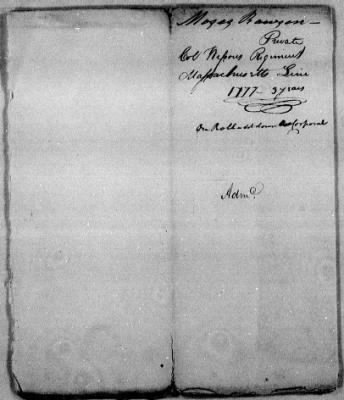 Moses Rawson —
Private
Col Nixons Regiment
Massachusetts Line
1777 - 3 years
On Roll down as Corporal
Admd.